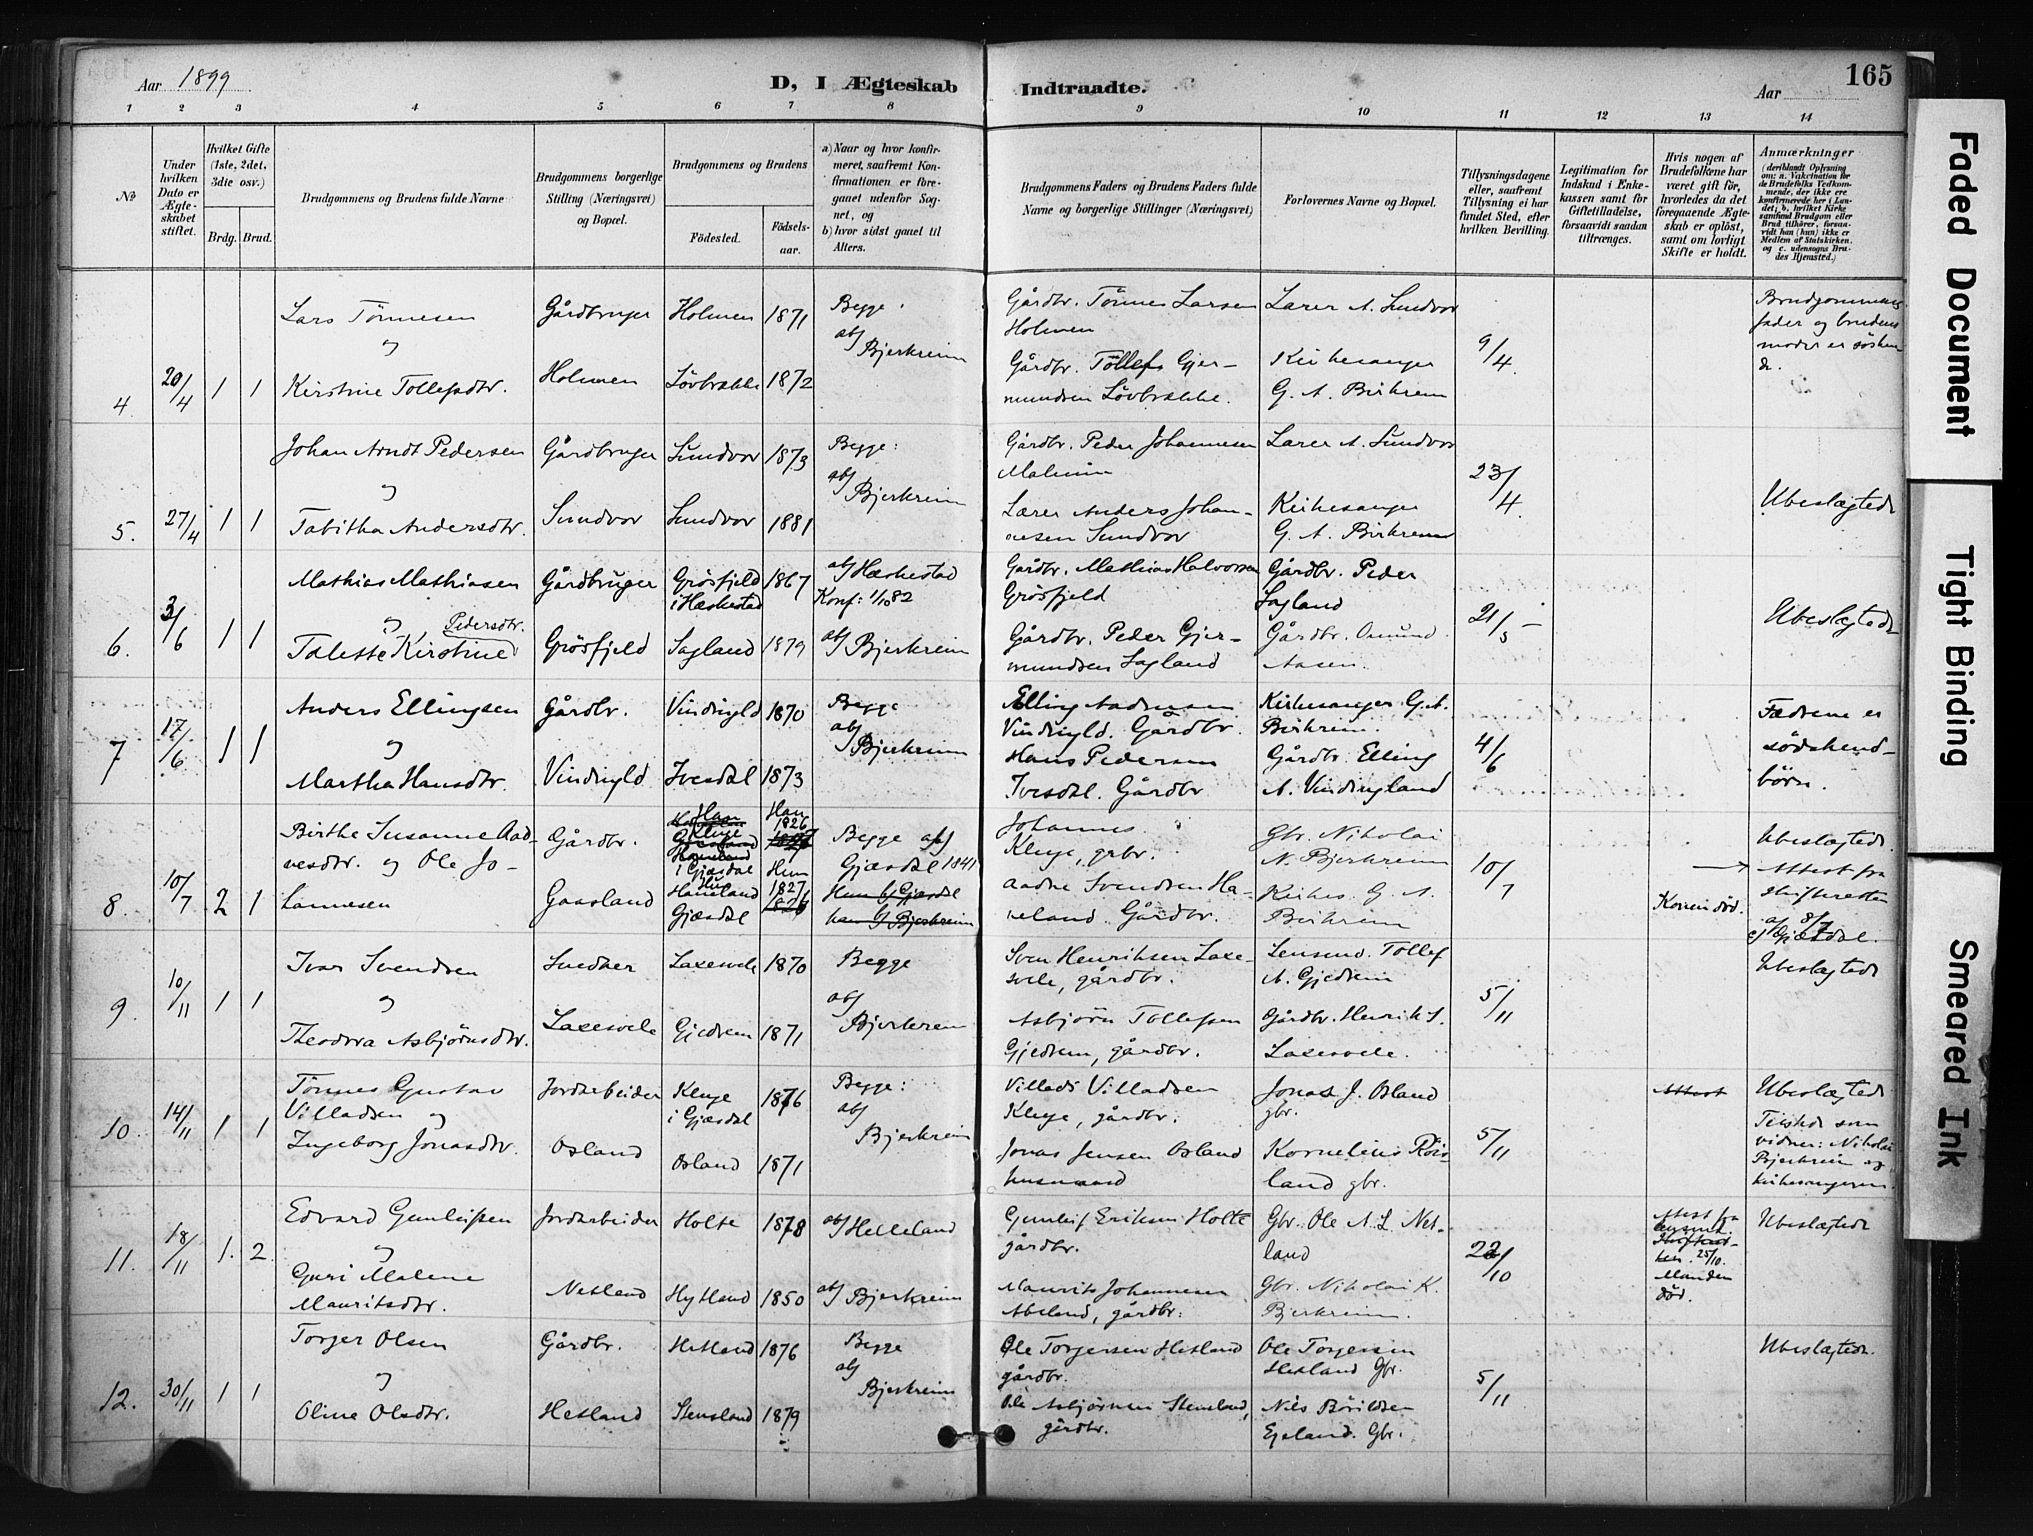 Aar 1899
D, I Ægteskab Indtraadte.
Aar
165
1 2 3 4 5 6 7 8 9 10 11 12 13 14
No
Under hvilken Dato er Ægteskabet stiftet.
Hvilket Gifte (1ste, 2det, 3die osv.)
Brdg. Brud.
Brudgommens og Brudens fulde Navne
Brudgommens borgerlige Stilling (Næringsvei) og Bopæl.
Brudgommens og Brudens
Fødested.
Fødsels-aar.
a) Naar og hvor konfirmeret, saafremt Konfirmationen er foregaaet udenfor Sognet, og
b) hvor sidst gaaet til Alters.
Brudgommens Faders og Brudens Faders fulde Navne og borgerlige Stillinger (Næringsvei)
Forlovernes Navne og Bopæl.
Tillysningsdagene eller, saafremt Tillysning ei har fundet Sted, efter hvilken Bevilling.
Legitimation for Indskud i Enkekassen samt for Giftetilladelse, forsaavidt saadan tiltrænges.
Hvis nogen af Brudefolkene har været gift før, hvorledes da det foregaaende Ægteskab er opløst, samt om lovligt Skifte er holdt.
Anmærkninger (deriblandt Oplysning om: a. Vakcination for de Brudefolks Vedkommende, der ikke ere konfirmerede her i Landet; b. hvilket Kirkesamfund Brudgom eller Brud tilhører, forsaavidt han (hun) ikke er Medlem af Statskirken, og c. udensogns Brudes Hjemsted.)
4. 20/4 1 1
Lars Tönnesen
og
Kirstine Tollefsdtr.
Gårdbruger
Holmen
Holmen 1871
Løvbrække 1872
Begge
abf Bjerkreim
Gårdbr. Tönnes Larsen
Holmen
Gårdbr. Tollef Gjermundsen Løvbrække.
Lærer A. Sundvor
Kirkesanger
G. A. Birkrem
9/4
Brudgommens
fader og brudens
moder er söskende.
5. 27/4 1 1
Johan Arndt Pedersen
og
Tabitha Andersdtr.
Gårdbruger
Sundvor
Sundvor 1873
Sundvor 1881
Begge:
abf Bjerkreim
Gårdbr. Peder Johannesen
Lærer Anders Johannesen Sundvor
Lærer A. Sundvor
Kirkesanger
G. A. Birkrem
23/4
Ubeslægtede
6. 3/6 1 1
Mathias Mathiasen
og Pedersdtr.
Talette Kirstine
Gårdbruger
Grösfjeld
Grösfjeld
i Heskestad 1867
Sagland 1879
abf Heskestad
Konf: 1/10 82
abf Bjerkreim
Gårdbr. Mathias Halvorsen
Grösfjeld
Gårdbr. Peder Gjermundsen Sagland
Gårdbr. Peder
Sagland
Gårdbr. Omund
Aasen.
21/5
Ubeslægtede
7 17/6 1 1
Anders Ellingsen
og
Martha Hansdtr.
Gårdbr.
Vindingld
Vindingld 1870
Ivesdal 1873
Begge
abf Bjerkreim
Elling Andersen
Vindingld. Gårdbr.
Hans Pedersen
Ivesdal. Gårdbr
Kirkesanger G. A.
Birkrem.
Gårdbr. Elling
A. Vindingland
4/6
Fædrene er
södskendbörn.
8. 10/7 2 1
Birthe Susanne Aadnesdtr. og Ole Johannesen
Gårdbr.
Gaasland
Han
Kluge
i Gjæsdal
Haneland
Gjæsdal
Han 1826
Hun 1827
Begge abf
Gjæsdal 1841
Hun bf Gjæsdal
han bf Bjerkreim
Johannes
Kluge, grbr.
Aadne Svendsen Haneland Gårdbr.
Gbr. Nikolai
N. Bjerkreim
Kirkes. G. A.
Birkrem
10/7
Konen död.
Ubeslægtede.
Attest fra
Skifteretten
af 8/7
Gjæsdal.
9 10/11 1 1
Ivar Svendsen
og
Theodora Asbjörnsdtr.
Snedker
Laxesvele
Laxesvele 1870
Gjedrem 1871
Begge
abf
Bjerkrem
Sven Henriksen Laxesvele, gårdbr.
Asbjörn Tollefsen
Gjedrem, gårdbr.
Lensmd. Tollef
A. Gjedrem
Gårdbr. Henrik S.
Laxesvele.
5/11
Ubeslægtede
10. 14/11 1 1
Tönnes Gustav
Villadsen og
Ingeborg Jonasdtr.
Jordarbeider
Osland
Kluge
i Gjæsdal 1876
Osland 1871
Begge:
abf
Bjerkreim
Villads Villadsen
Kluge, gårdbr.
Jonas Jensen Osland
husmand
Jonas J. Osland
gbr.
Kornelius Röisland gbr.
5/11
Attest
Ubeslægtede
Teistede som
vidner: Nikolai
Bjerkreim og
kirkesangeren.
11. 18/11 1. 2
Edvard Gunleifsen
og
Guri Malene
Mauritsdtr.
Jordarbeider
Netland
Holte 1878
Hytland 1850
abf Helleland
abf Bjerkreim
Gunleif Eriksen Holte
gårdbr.
Maurits Johannesen
Abeland, gårdbr.
Gbr. Ole A. L. Netland
Gbr. Nikolai K.
Bjerkreim.
22/10
Attest fra
lensmd
25/10.
Manden
död.
Ubeslægtede
12. 30/11 1 1
Torger Olsen
og
Oline Olsdtr.
Gårdbr.
Hetland
Hetland 1876
Stensland 1879
Begge
abf
Bjerkreim
Ole Torgersen Hetland
gårdbr.
Ole Asbjörnsen Stensland,
gårdbr.
Ole Torgersen
Hetland Gbr.
Nils Börildsen
Ejeland. Gbr.
5/11
Ubeslægtede.
Faded Document
Tight Binding
Smeared Ink